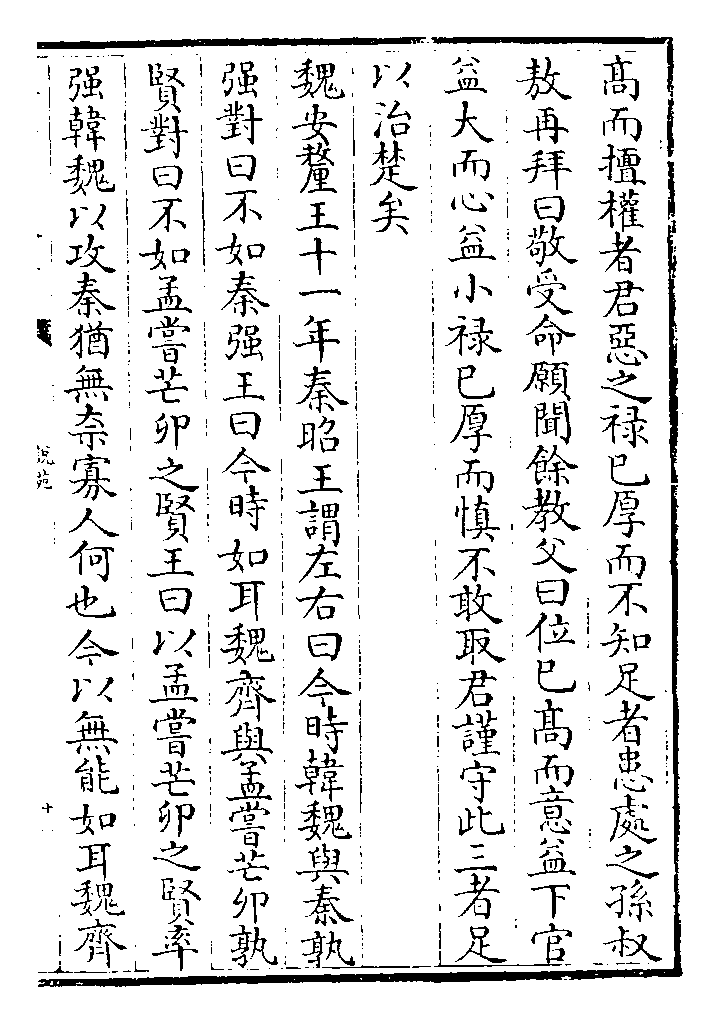 髙而擅權者君惡之禄已厚而不知足者患處之孫叔
敖再拜曰敬受命願聞餘教父曰位已髙而意益下官
益大而心益小禄已厚而慎不敢取君謹守此三者足
以治楚矣
魏安釐王十一年秦昭王謂左右曰今時韓魏與秦孰
强對曰不如秦强王曰今時如耳魏齊與孟嘗芒卯孰
賢對曰不如孟嘗芒卯之賢王曰以孟嘗芒卯之賢率
强韓魏以攻秦猶無柰寡人何也今以無能如耳魏齊
說苑
十